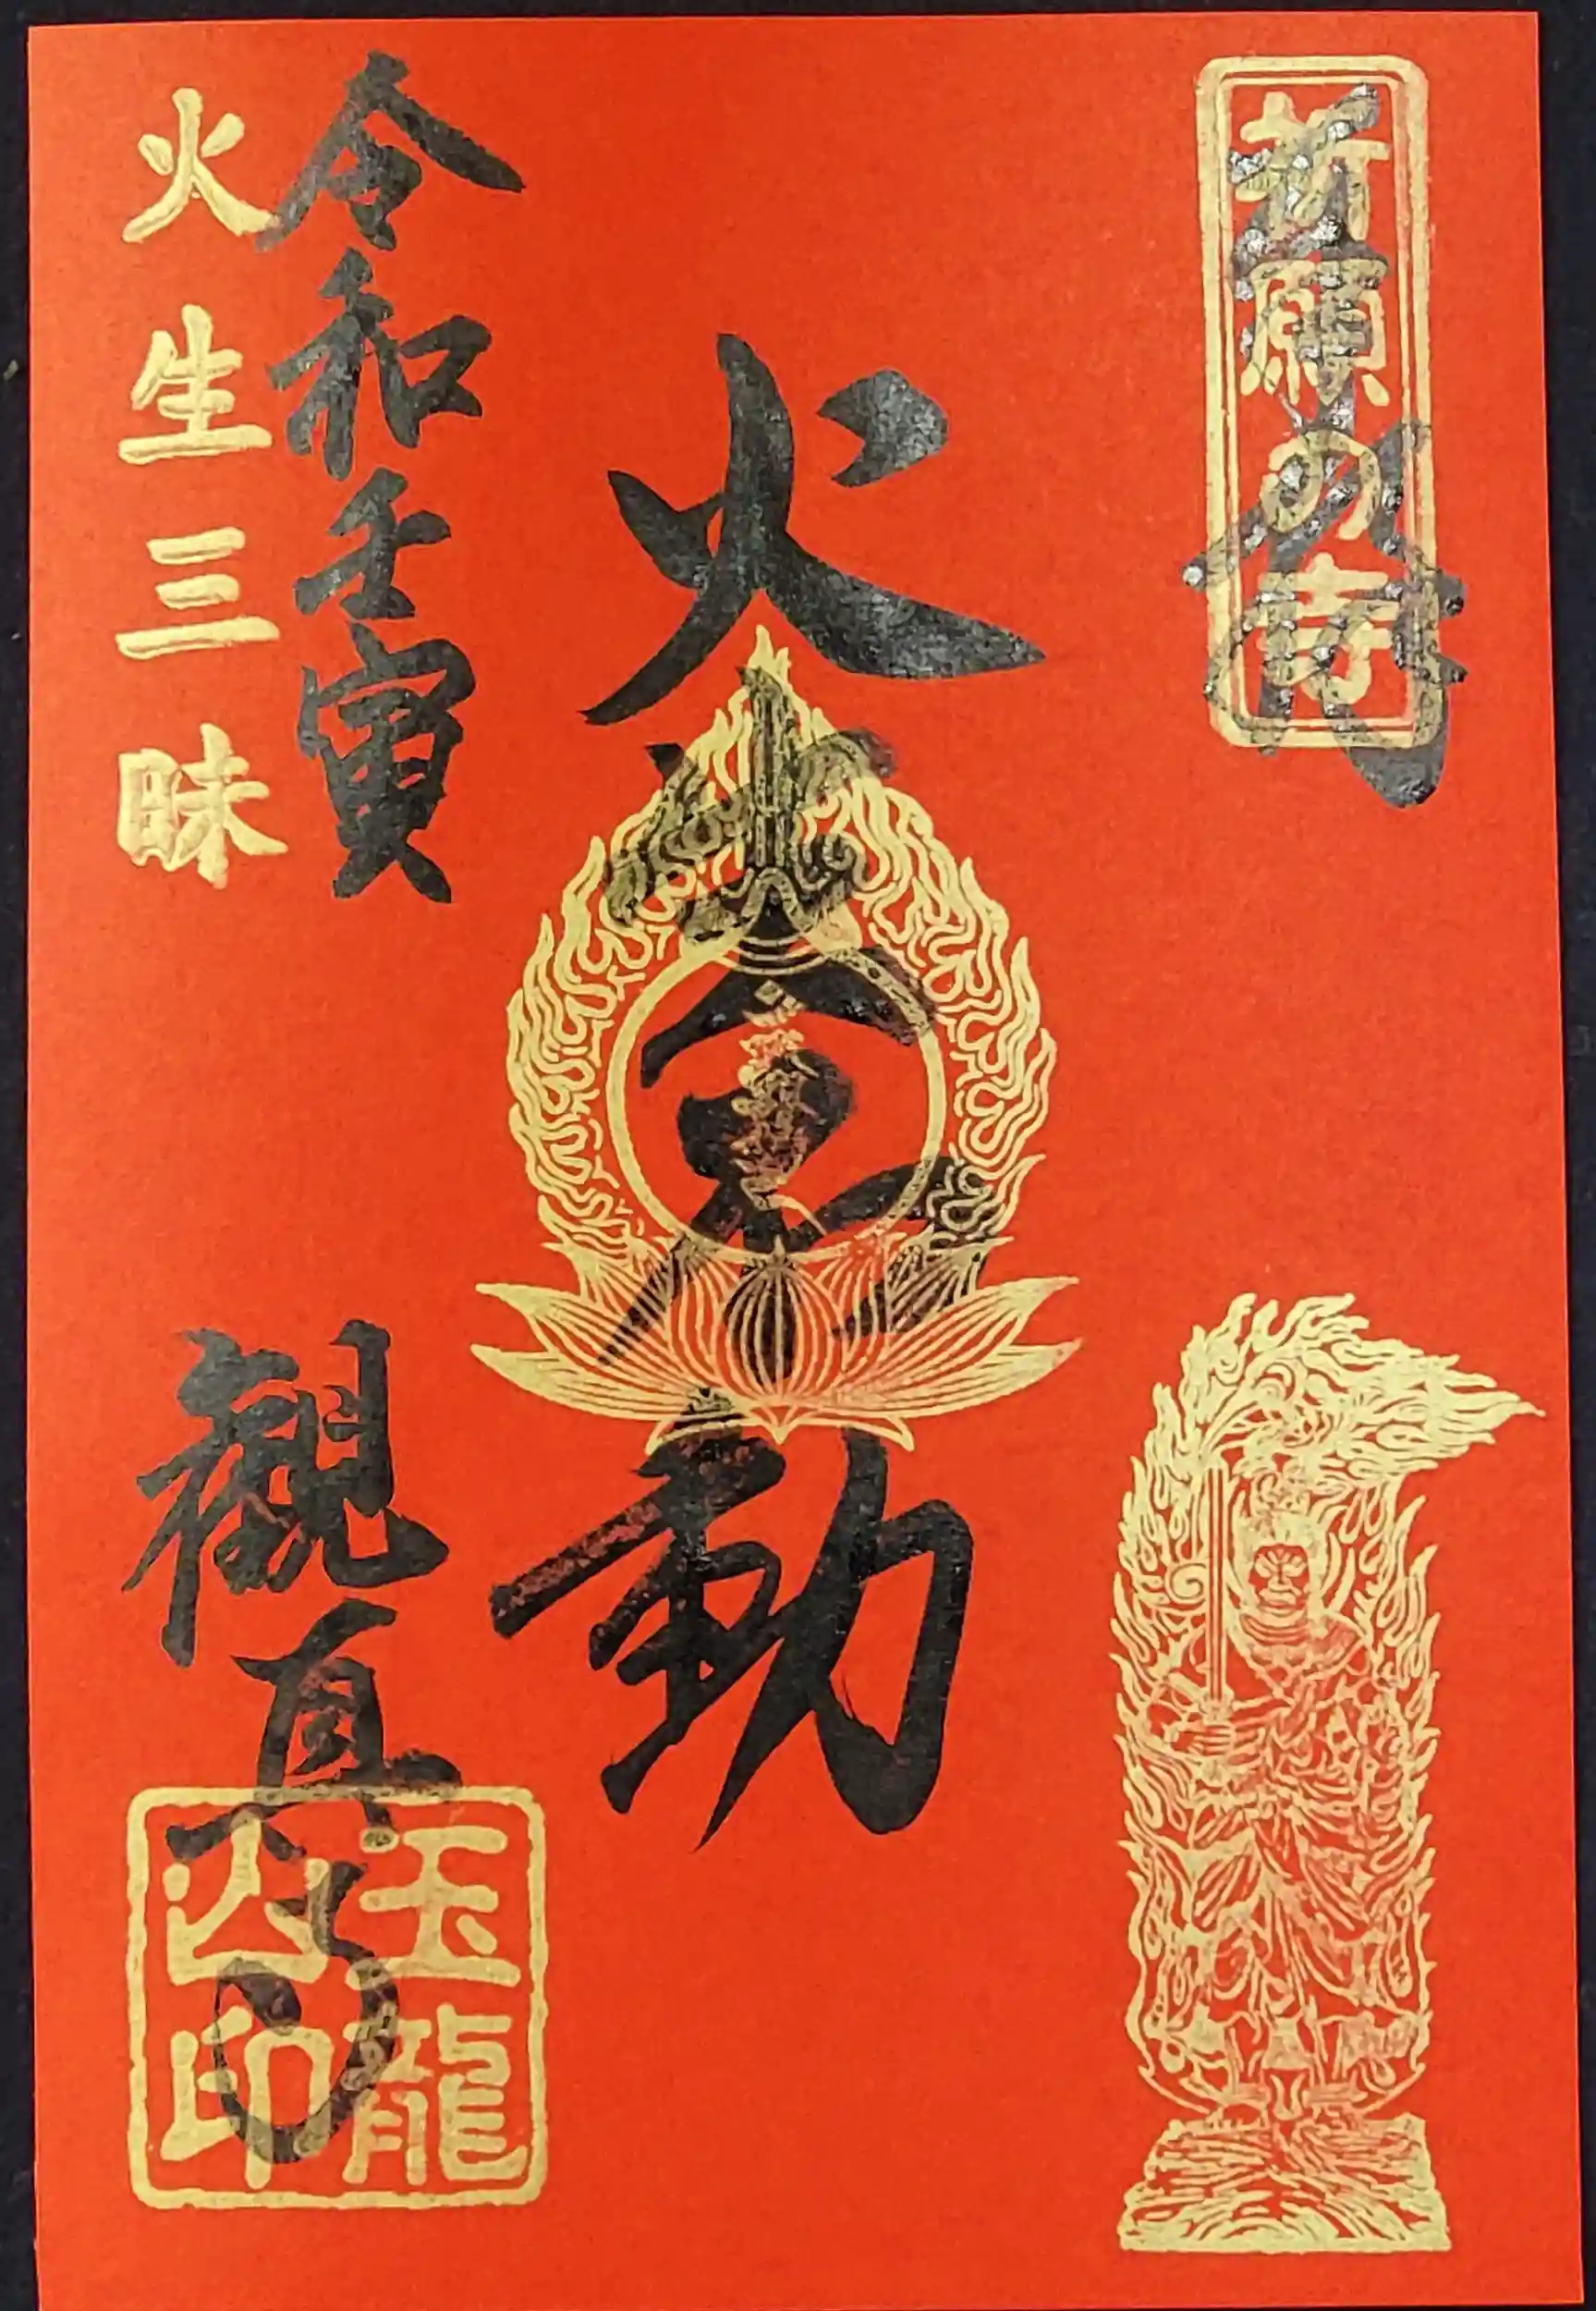 奉拝
祈願の寺
火
動
令和壬寅
火生三昧
観真寺
玉龍
山印